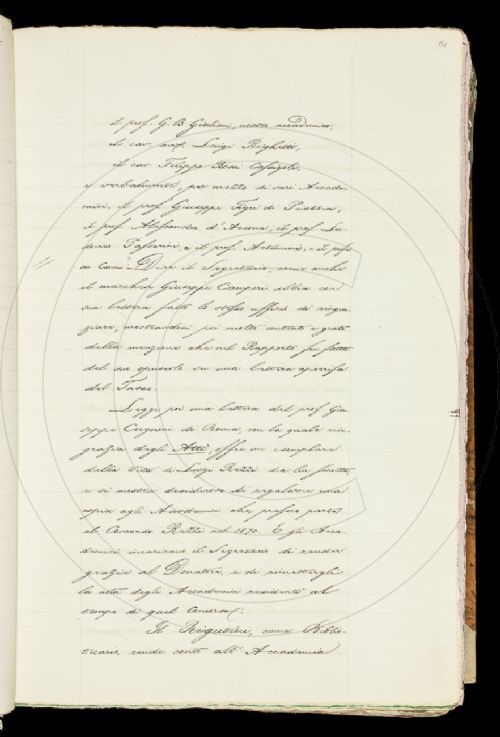 61
il prof. G. B. Giuliani, nostro accademico,
il cav. prof. Luigi Righetti,
il cav. Filippo
e verbalmente, per mezzo di vari Accade-
mici, il prof. Giuseppe Tigri di Pistoia,
il prof. Alessandro d'Ancona, il prof.
e il prof. e il
Dice il Segretario, come anche
il marchese Giuseppe Campori abbia con
sua lettera fatto lo stesso ufficio di ringra-
ziare, mostrandosi poi molto contento e grato
della menzione che nel Rapporto fu fatta
del suo opuscolo su una lettera apocrifa
del Tasso.
Legge poi una lettera del prof. Giu-
seppe Cugnoni di Roma, con la quale rin-
grazia degli Atti, offre un esemplare
della Vita di Luigi da lui scritta,
e si mostra desideroso di regalarne una
copia agli Accademici che presero parte
al Concorso del 1870. E gli Acca-
demici incaricano il Segretario di render
grazie al Donatore, e di rimettergli
la nota degli Accademici residenti al
tempo di quel Concorso.
Il Rigutini, come Biblio-
tecario, rende conto all'Accademia